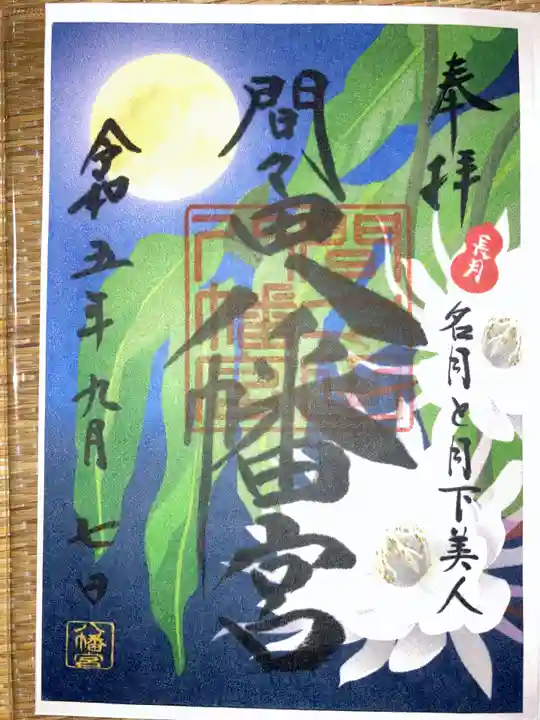 奉拝
長月
名月と月下美人
間々田八幡宮
令和五年九月七日
八幡宮